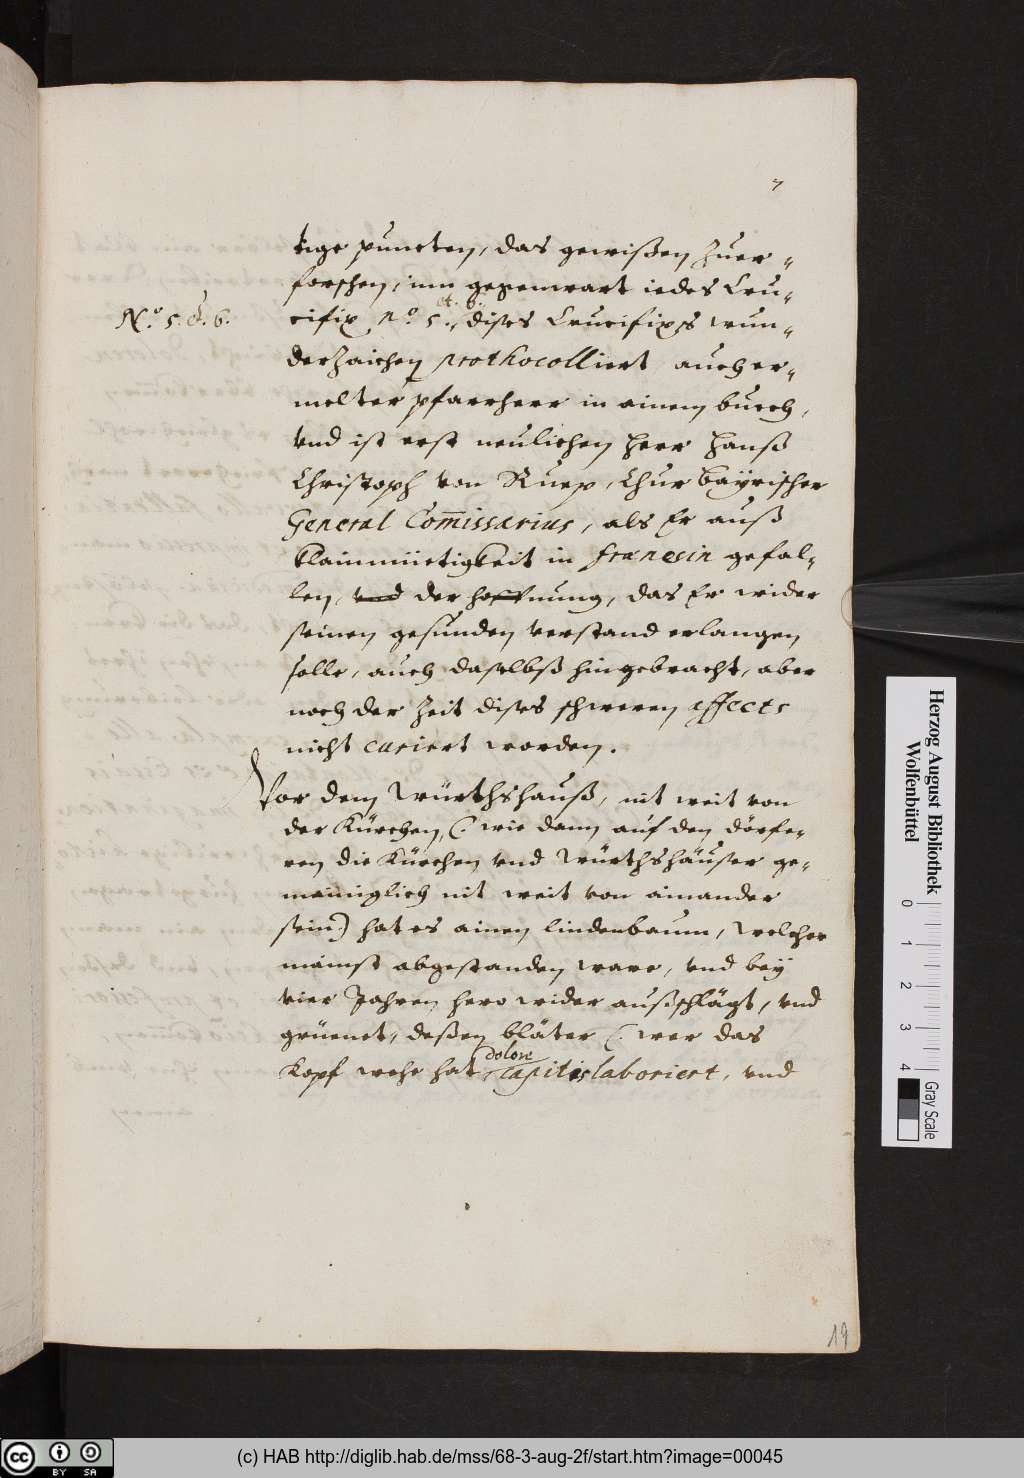 7
tige puncten, das gewißen zuer-
forschen, inn gegenwart iedes Cru-
No. 5. et. 6.
et. 6.
cifix No. 5., dises Crucifixs wun-
derzaichen prothocolliert auch er-
melter pfarrherr in ainem buech,
vnd ist erst neulichen herr Hanß
Christoph von Ruep, Chur Bayrischer
General Com̄issarius, als Er auß
klainmüetigkeit in frænesin gefal-
len, vnd der hoffnung, das Er wider
seinen gesunden verstand erlangen
solle, auch daselbß hingebracht, aber
noch der Zeit dises schweren effects
nicht curiert worden.
Vor dem Würthshauß, nit weit von
der Kürchen, (: wie dann auf den dörfe-
ren die Kürchen vnd Würthshäuser ge-
mainiglich nit weit von ainander
sein:) hat es ainen lindenbaum, welcher
mainst abgestanden ware, vnd bey
vier Jahren hero wider außschlägt, vnd
grüenet, deßen bläter (: wer das
dolore
Kopf wehe hat, capitis laboriert, vnd
19
Herzog August Bibliothek
Wolfenbüttel
0 1 2 3 4
Gray Scale
cc BY SA
(c) HAB http://diglib.hab.de/mss/68-3-aug-2f/start.htm?image=00045